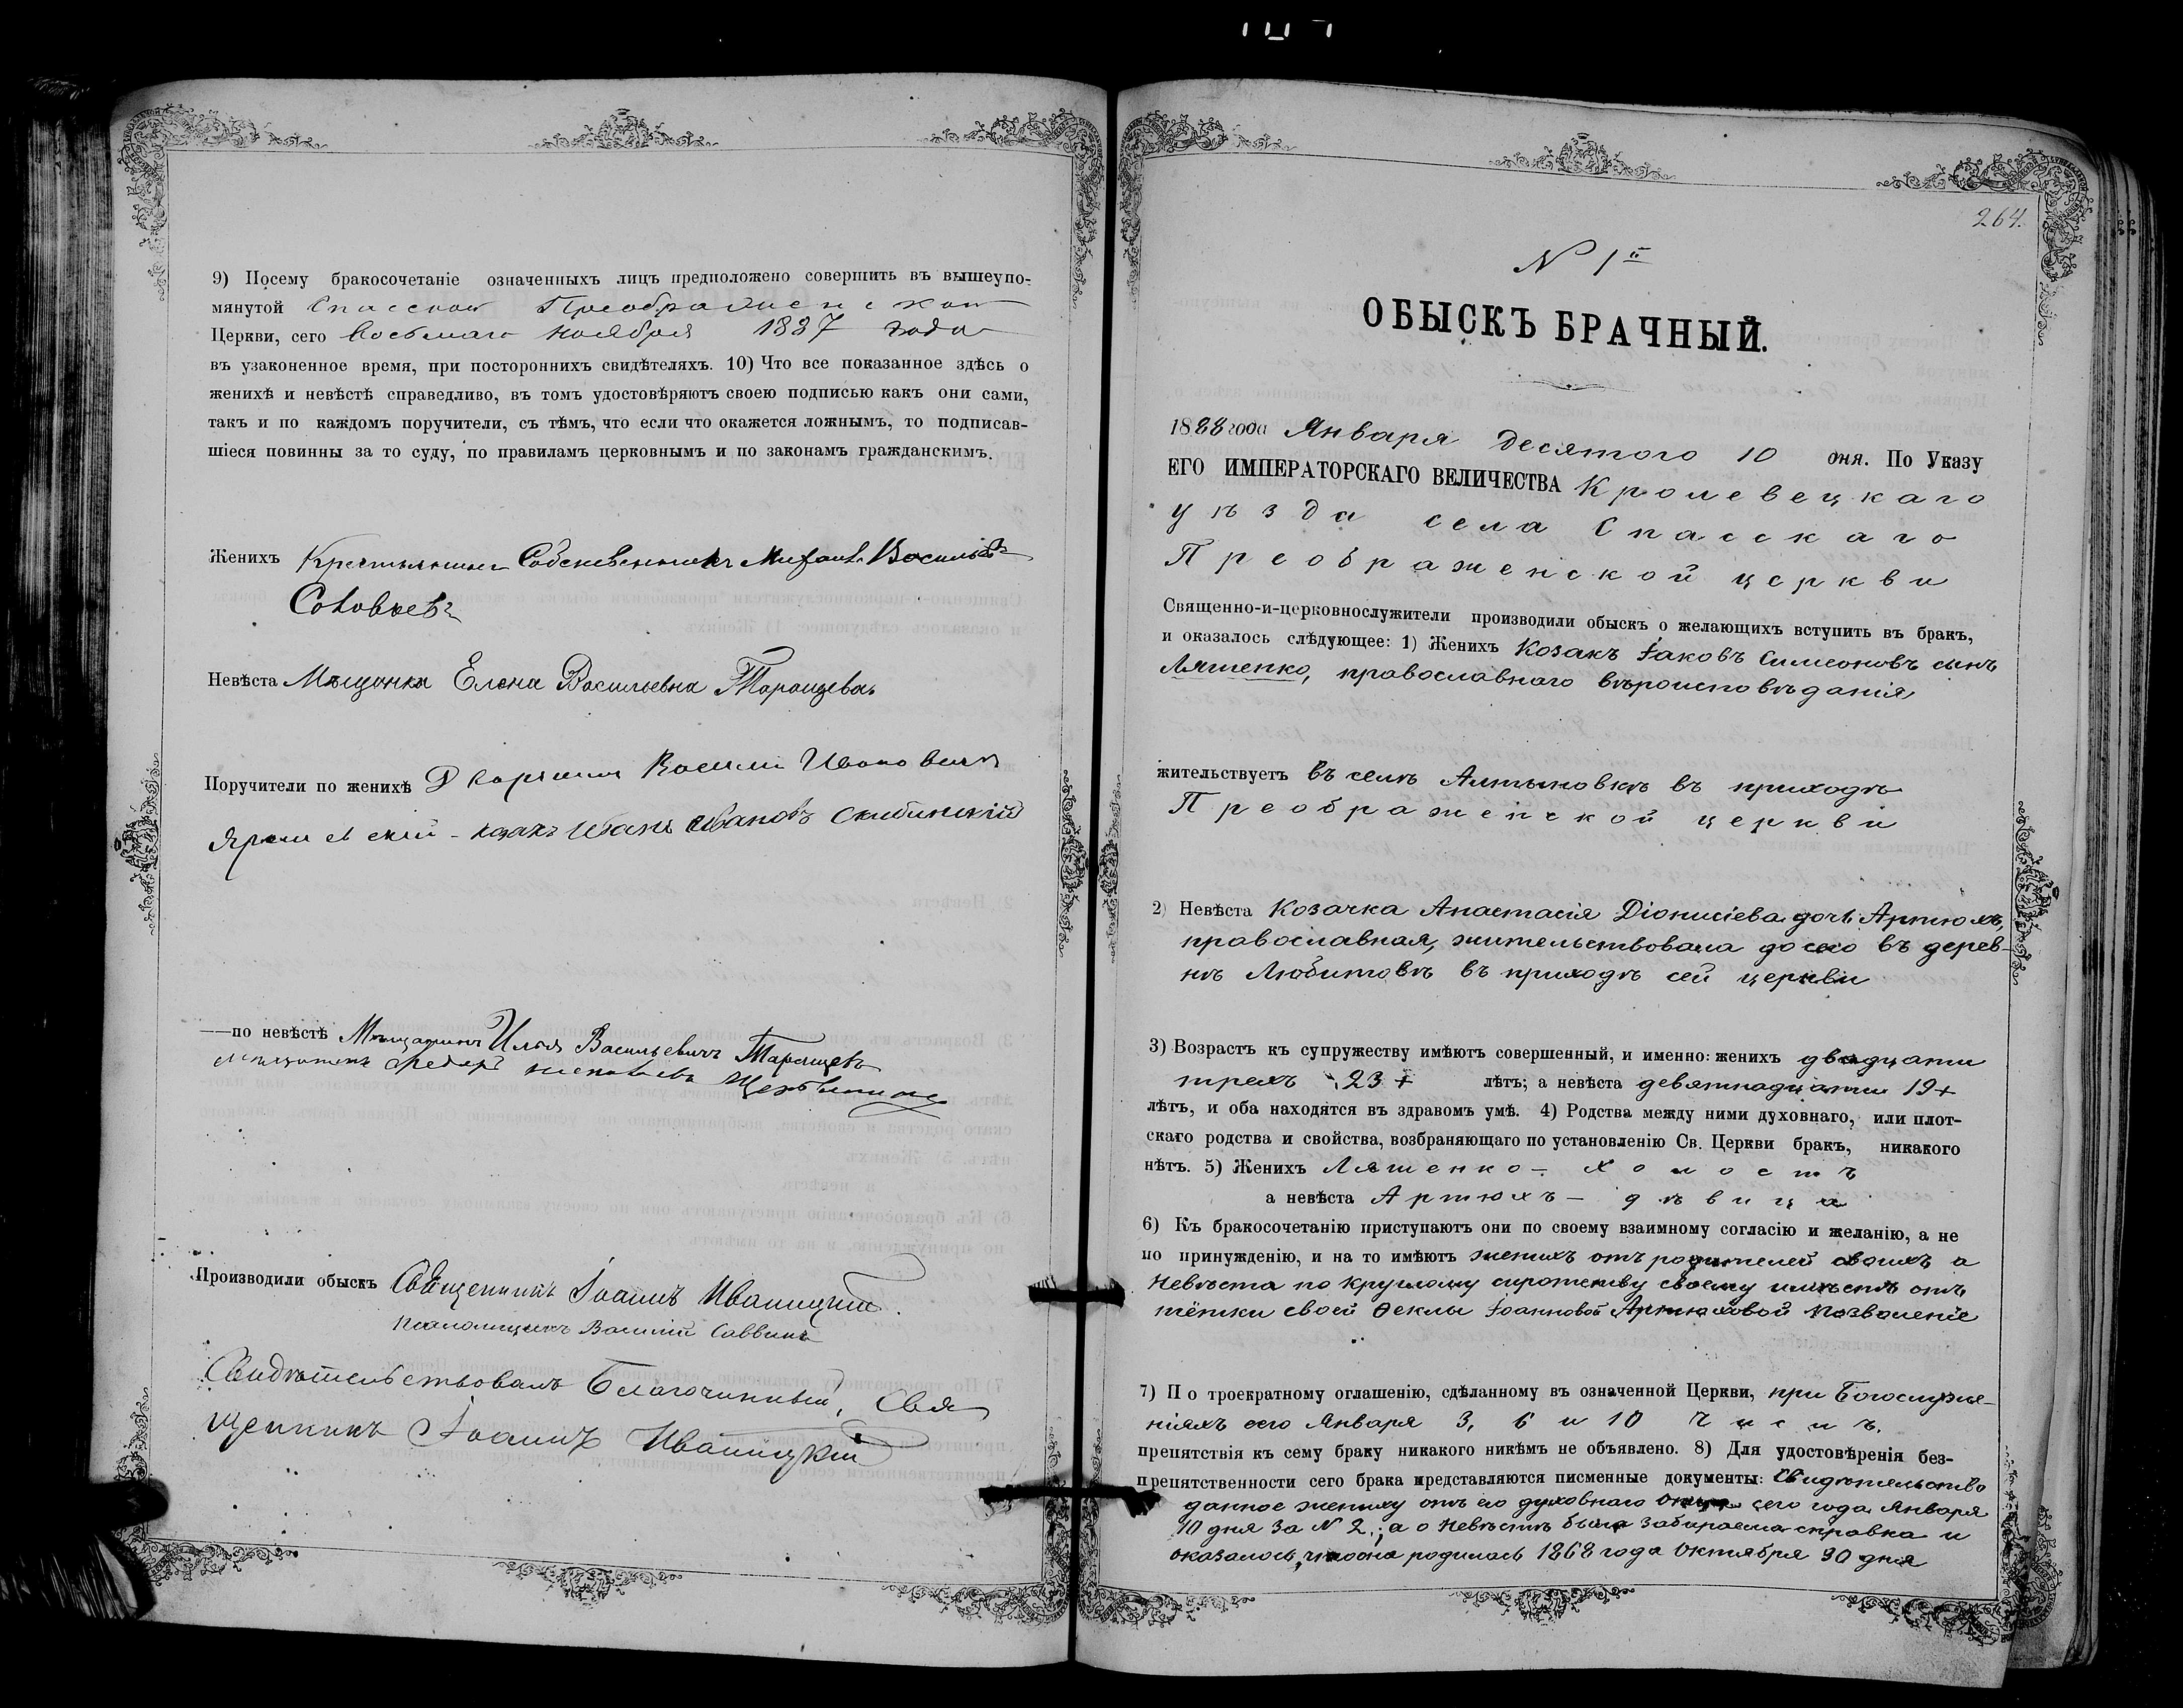 9) Посему бракосочетаніе означенныхъ лицъ предположено совершить въ вышеупо-
мянутой Спасской Преображенской
Церкви, сего восьмаго ноября 1887 года
въ узаконенное время, при постороннихъ свидѣтеляхъ. 10) Что все показанное здѣсь о
женихѣ и невѣстѣ справедливо, въ томъ удостовѣряютъ своею подписью какъ они сами,
такъ и по каждомъ поручители, съ тѣмъ, что если что окажется ложнымъ, то подписав-
шіеся повинны за то суду, по правиламъ церковнымъ и по законамъ гражданскимъ.
Женихъ Крестьянинъ Собственникъ Василій
Соловьевъ
Невѣста Мѣщанка Елена Васильевна Таранцева
Поручители по женихѣ Дворянинъ Василій Ивановичъ
козакъ Иванъ Ивановъ Скибинскій
—по невѣстѣ Мѣщанинъ Илья Васильевичъ Таранцевъ
Мѣщанинъ
Производили обыскъ Священникъ Іоаннъ Иваницкій.
Псаломщикъ Василій Саввинъ
Свидѣтельствовалъ Благочинный, Свя
щенникъ Іоаннъ Иваницкій
264.
N 1й
ОБЫСКЪ БРАЧНЫЙ.
1888 года Января десятого 10 дня. По Указу
ЕГО ИМПЕРАТОРСКАГО ВЕЛИЧЕСТВА Кролевецкаго
уѣзда села Спасскаго
Преображенской церкви
Священно-и-церковнослужители производили обыскъ о желающихъ вступить въ бракъ,
и оказалось слѣдующее: 1) Женихъ Козакъ Іаковъ Симеоновъ сынъ
Ляшенко, православнаго вѣроисповѣданія,
жительствуетъ въ селѣ Алтыновкѣ въ приходѣ
Преображенской церкви
2) Невѣста Козачка Анастасія Діонисіева дочь Артюхъ,
православная, жительствовала до сего въ дерев-
нѣ Любитовѣ въ приходѣ сей церкви
3) Возрастъ къ супружеству имѣютъ совершенный, и именно: женихъ двадцати
трехъ 23 + лѣтъ; а невѣста девятнадцати 19+
лѣтъ, и оба находятся въ здравомъ умѣ. 4) Родства между ними духовнаго, или плот-
скаго родства и свойства, возбраняющаго по установленію Св. Церкви бракъ, никакого
нѣтъ. 5) Женихъ Ляшенко — холостъ
а невѣста Артюхъ — дѣвица
6) Къ бракосочетанію приступаютъ они по своему взаимному согласію и желанію, а не
по принужденію, и на то имѣютъ женихъ отъ родителей своихъ а
Невѣста по круглому сиротству своему имѣетъ отъ
тётки своей Ѳеклы Іоанновой Артюховой позволеніе
7) По троекратному оглашенію, сдѣланному въ означенной Церкви, при Богослуже-
ніяхъ сего Января 3, 6 и 10 числъ.
препятствія къ сему браку никакого никѣмъ не объявлено. 8) Для удостовѣренія без-
препятственности сего брака представляются писменные документы: Свидѣтельство
данное жениху отъ его духовнаго отца сего года Января
10 дня за N 2,; а о невѣстѣ была забираема справка и
оказалось, что она родилась 1868 года Октября 30 дня